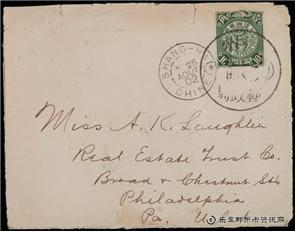 SHANG-H
25
AOUT
02
CHINE
10
10
Miss A. K. Laughlin
Real Estate Trust Co.
Broad & Chestnut Sts
Philadelphia
Pa. U.S.A.
乐享邮币卡资讯网